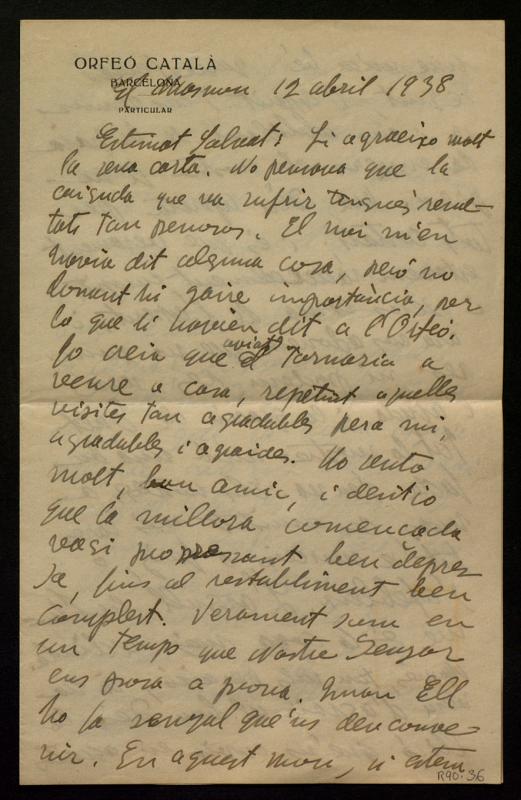 ORFEÓ CATALÀ
BARCELONA
PARTICULAR
El Masnou 12 abril 1938
Estimat Salvat: Li agraeixo molt
la seva carta. No pensava que la
caiguda que va sufrir tingués resul-
tats tan penosos. El noi m'en
havia dit alguna cosa, però no
donant-hi gaire importància, per
lo que li havien dit a l'Orfeó.
Jo creia que aviat el tornaria a
veure a casa, repetint aquelles
visites tan agradables pera mi,
agradables i agraides. Ho sento
molt, bon amic, i desitjo
que la millora començada
vagi progressant ben depres-
sa, fins al restabliment ben
complert. Verament som en
un temps que Nostre Senyor
ens posa a prova. Quan Ell
ho fa senyal que'ns deu conve-
nir. En aquest mon, si estem
R90-36